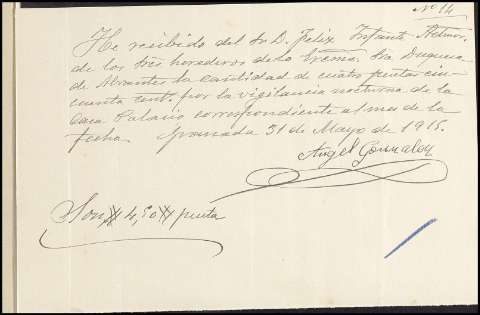 Nº 14
He recibido del Sr. D. Felix Infante Admor.
de los Sres herederos de la Excma. Sra Duquesa
de Abrantes la cantidad de cuatro pesetas cin-
cuenta cent. por la vigilancia nocturna de la
Casa Palacio correspondiente al mes de la
fecha. Granada 31 de Mayo de 1915.
Angel Gonzalez
Son # 4,50 # pesetas